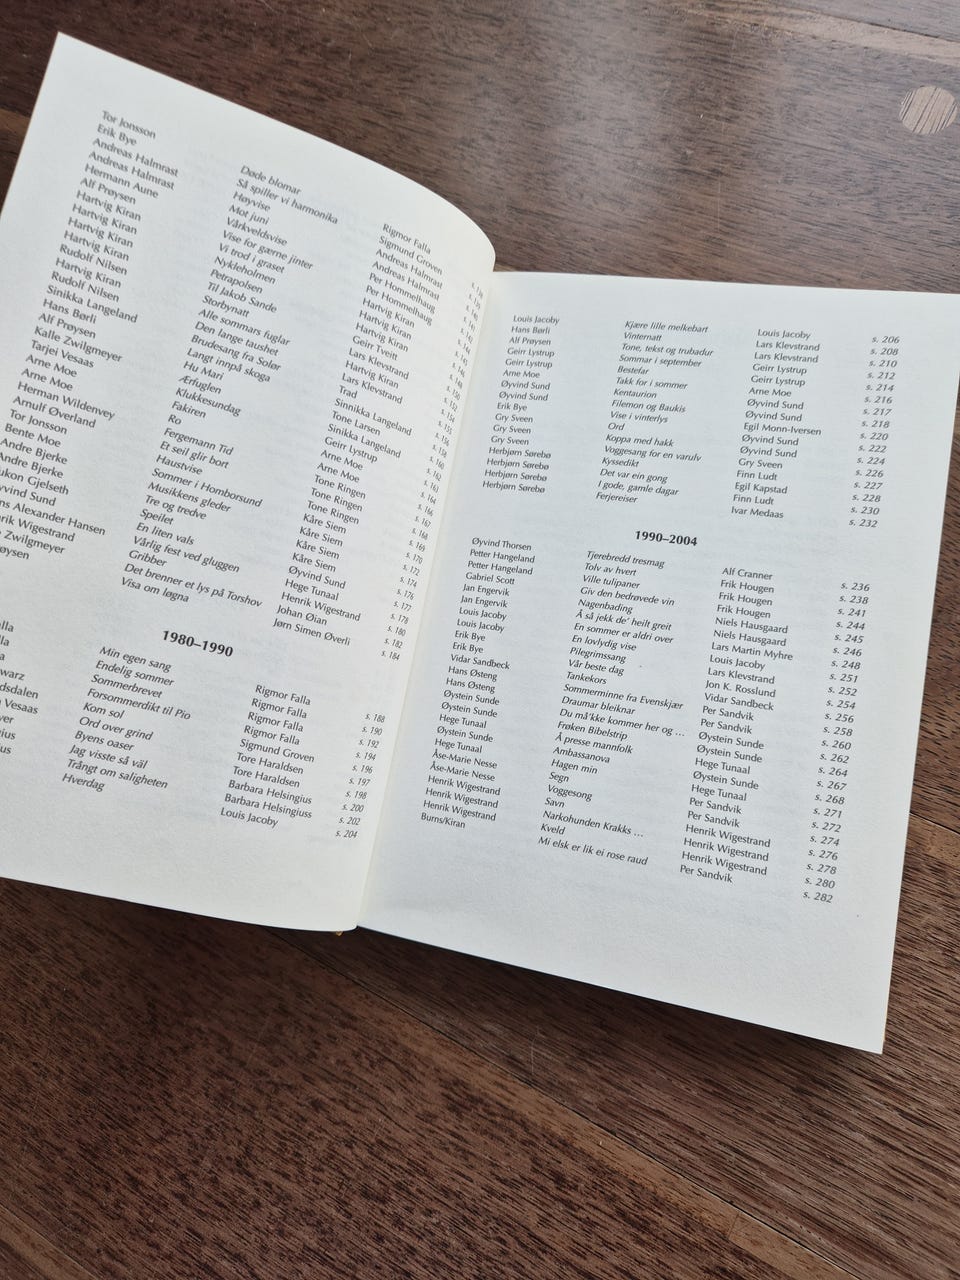 Tor Jonsson
Erik Bye
Andreas Halmrast
Andreas Halmrast
Hermann Aune
Alf Prøysen
Hartvig Kiran
Hartvig Kiran
Hartvig Kiran
Hartvig Kiran
Rudolf Nilsen
Hartvig Kiran
Rudolf Nilsen
Sinikka Langeland
Hans Børli
Alf Prøysen
Kalle Zwilgmeyer
Tarjei Vesaas
Arne Moe
Arne Moe
Herman Wildenvey
Arnulf Øverland
Tor Jonsson
Bente Moe
Andre Bjerke
Andre Bjerke
ukon Gjelseth
yvind Sund
ns Alexander Hansen
nrik Wigestrand
Zwilgmeyer
øysen
Døde blomar
Så spiller vi harmonika
Høyvise
Mot juni
Vårkveldsvise
Vise for gærne jinter
Vi trod i graset
Nykleholmen
Petrapolsen
Til Jakob Sande
Storbynatt
Alle sommars fuglar
Den lange taushet
Brudesang fra Solør
Langt innpå skoga
Hu Mari
Ærfuglen
Klukkesundag
Ro
Fakiren
Fergemann Tid
Et seil glir bort
Haustvise
Sommer i Homborsund
Musikkens gleder
Tre og tredve
Speilet
En liten vals
Vårlig fest ved gluggen
Gribber
Det brenner et lys på Torshov
Visa om løgna
Rigmor Falla
Sigmund Groven
Andreas Halmrast
Andreas Halmrast
Per Hommelhaug
Per Hommelhaug
Hartvig Kiran
Hartvig Kiran
Hartvig Kiran
Geirr Tveitt
Lars Klevstrand
Hartvig Kiran
Lars Klevstrand
Trad
Sinnikka Langeland
Tone Larsen
Sinikka Langeland
Geirr Lystrup
Arne Moe
Arne Moe
Tone Ringen
Tone Ringen
Tone Ringen
Kåre Siem
Kåre Siem
Kåre Siem
Øyvind Sund
Hege Tunaal
Henrik Wigestrand
Johan Øian
Jørn Simen Øverli
s. 150
s. 152
s. 154
s. 155
s. 156
s. 158
s. 160
s. 162
s. 163
s. 164
s. 166
s. 167
s. 168
s. 169
s. 170
s. 172
s. 174
s. 176
s. 177
s. 178
s. 180
s. 182
s. 184
1980–1990
lla
lla
a
warz
dsdalen
Vesaas
yer
gius
ius
Min egen sang
Endelig sommer
Sommerbrevet
Forsommerdikt til Pio
Kom sol
Ord over grind
Byens oaser
Jag visste så väl
Trångt om saligheten
Hverdag
Rigmor Falla
Rigmor Falla
Rigmor Falla
Rigmor Falla
Sigmund Groven
Tore Haraldsen
Tore Haraldsen
Barbara Helsingius
Barbara Helsingiuss
Louis Jacoby
s. 188
s. 190
s. 192
s. 194
s. 196
s. 197
s. 198
s. 200
s. 202
s. 204
Louis Jacoby
Hans Børli
Alf Prøysen
Geirr Lystrup
Geirr Lystrup
Arne Moe
Øyvind Sund
Øyvind Sund
Erik Bye
Gry Sveen
Gry Sveen
Gry Sveen
Herbjørn Sørebø
Herbjørn Sørebø
Herbjørn Sørebø
Herbjørn Sørebø
Kjære lille melkebart
Vinternatt
Tone, tekst og trubadur
Sommar i september
Bestefar
Takk for i sommer
Kentaurion
Filemon og Baukis
Vise i vinterlys
Ord
Koppa med hakk
Voggesang for en varulv
Kyssedikt
Det var ein gong
I gode, gamle dagar
Ferjereiser
Louis Jacoby
Lars Klevstrand
Lars Klevstrand
Geirr Lystrup
Geirr Lystrup
Arne Moe
Øyvind Sund
Øyvind Sund
Egil Monn-Iversen
Øyvind Sund
Gry Sveen
Finn Ludt
Egil Kapstad
Finn Ludt
Ivar Medaas
s. 206
s. 208
s. 210
s. 212
s. 214
s. 216
s. 217
s. 218
s. 220
s. 222
s. 224
s. 226
s. 227
s. 228
s. 230
s. 232
1990–2004
Øyvind Thorsen
Petter Hangeland
Petter Hangeland
Gabriel Scott
Jan Engervik
Jan Engervik
Louis Jacoby
Louis Jacoby
Erik Bye
Erik Bye
Vidar Sandbeck
Hans Østeng
Hans Østeng
Øystein Sunde
Øystein Sunde
Hege Tunaal
Øystein Sunde
Hege Tunaal
Åse-Marie Nesse
Åse-Marie Nesse
Henrik Wigestrand
Henrik Wigestrand
Henrik Wigestrand
Burns/Kiran
Tjerebredd tresmag
Tolv av hvert
Ville tulipaner
Giv den bedrøvede vin
Nagenbading
Å så jekk de' heilt greit
En sommer er aldri over
En lovlydig vise
Pilegrimssang
Vår beste dag
Tankekors
Sommerminne fra Evenskjær
Draumar bleiknar
Du må'kke kommer her og …
Frøken Bibelstrip
Å presse mannfolk
Ambassanova
Hagen min
Segn
Voggesong
Savn
Narkohunden Krakks …
Kveld
Mi elsk er lik ei rose raud
Alf Cranner
Frik Hougen
Frik Hougen
Frik Hougen
Niels Hausgaard
Niels Hausgaard
Lars Martin Myhre
Louis Jacoby
Lars Klevstrand
Jon K. Rosslund
Vidar Sandbeck
Per Sandvik
Per Sandvik
Øystein Sunde
Øystein Sunde
Hege Tunaal
Øystein Sunde
Hege Tunaal
Per Sandvik
Per Sandvik
Henrik Wigestrand
Henrik Wigestrand
Henrik Wigestrand
Per Sandvik
s. 236
s. 238
s. 241
s. 244
s. 245
s. 246
s. 248
s. 251
s. 252
s. 254
s. 256
s. 258
s. 260
s. 262
s. 264
s. 267
s. 268
s. 271
s. 272
s. 274
s. 276
s. 278
s. 280
s. 282